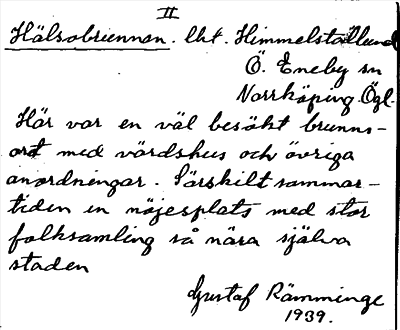 II
Hälsobrunnen. lht. Himmelstalund
Ö. Eneby sn
Norrköping Ögl.
Här var en väl besökt brunns-
ort med värdshus och övriga
anordningar. Särskilt sommar-
tiden en nöjesplats med stor
folksamling så nära själva
staden
Gustaf Rämminge
1939.